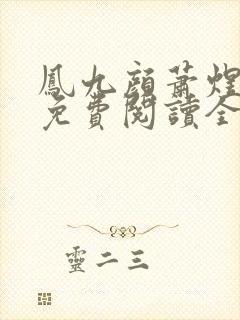 鳳九顏蕭煌
免費閱讀全
靈二三